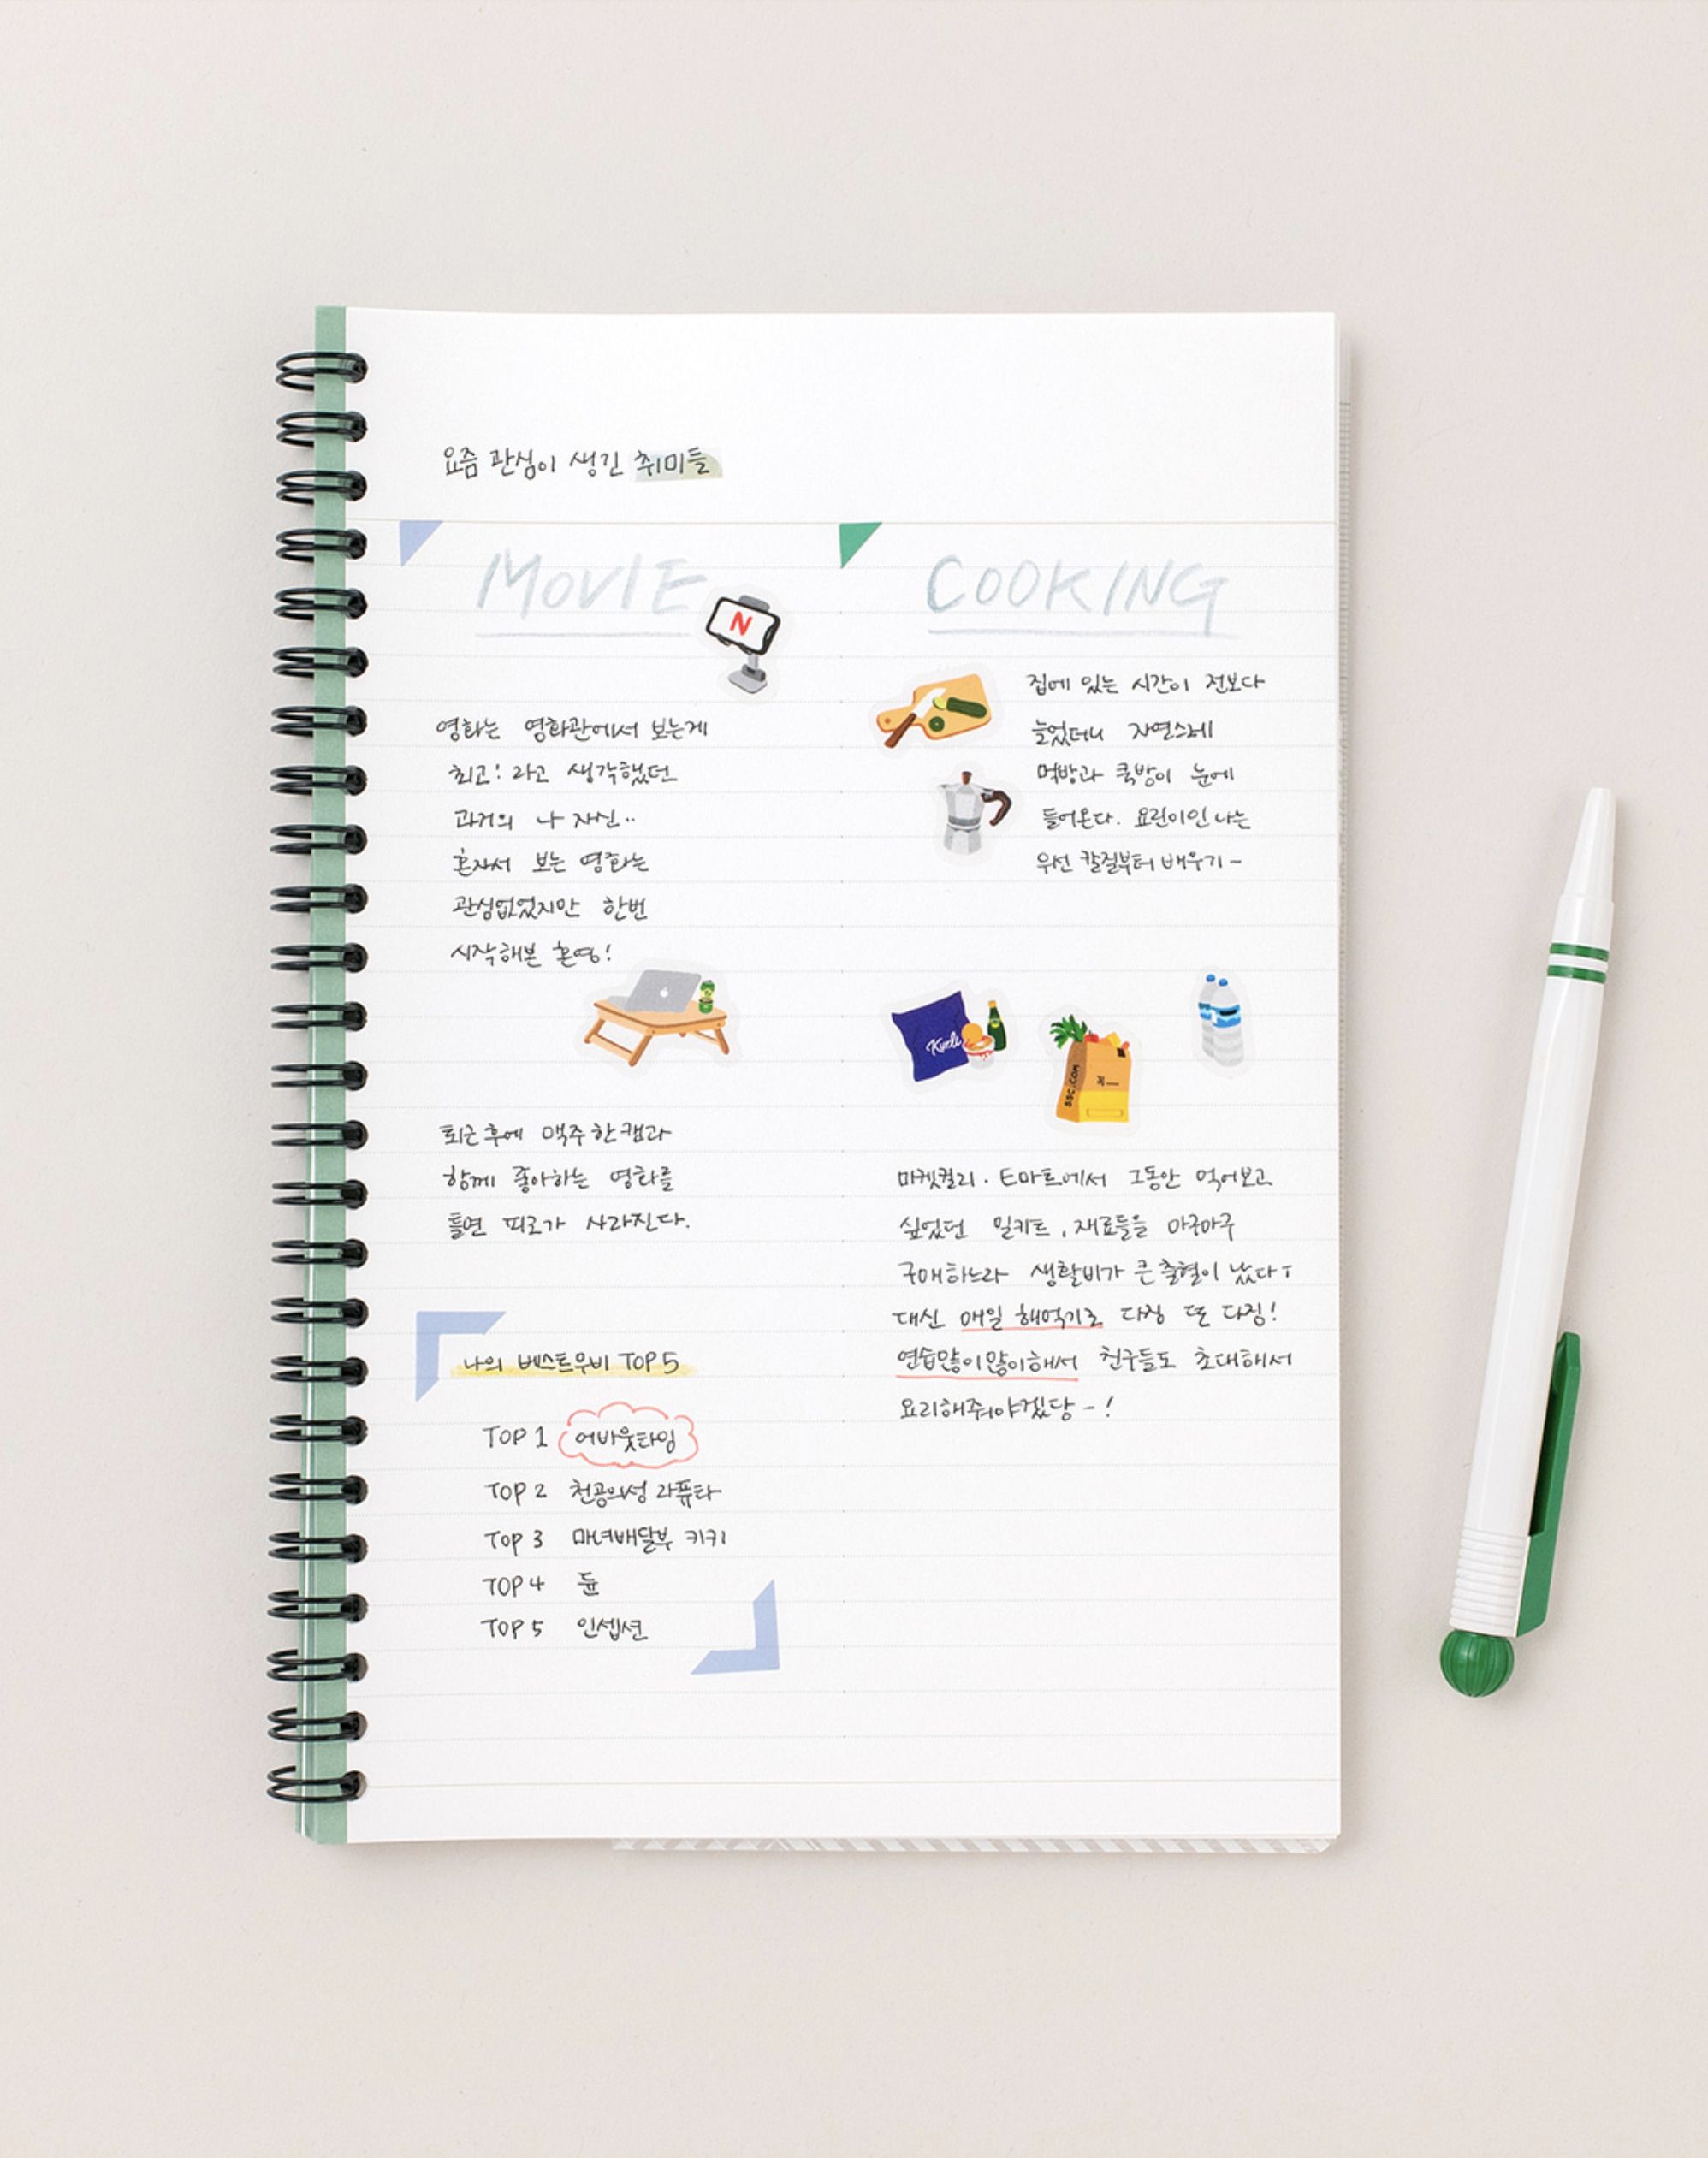 요즘 관심이 생긴 취미들
MOVIE
N
영화는 영화관에서 보는게
최고! 라고 생각했던
과거의 나 자신..
혼자서 보는 영화는
관심없었지만 한번
시작해본 혼영!
퇴근 후에 맥주 한캔과
함께 좋아하는 영화를
틀면 피로가 사라진다.
나의 베스트무비 TOP 5
TOP 1 어바웃타임
TOP 2 천공의성 라퓨타
TOP 3 마녀배달부 키키
TOP 4 듄
TOP 5 인셉션
COOKING
집에 있는 시간이 전보다
늘었더니 자연스레
먹방과 쿡방이 눈에
들어온다. 요린이인 나는
우선 칼질부터 배우기-
Kurly
SSG.COM
마켓컬리 · E마트에서 그동안 먹어보고
싶었던 밀키트, 재료들을 마구마구
구매하느라 생활비가 큰 출혈이 났다ㅜ
대신 매일 해먹기로 다짐 또 다짐!
연습많이많이해서 친구들도 초대해서
요리해줘야겠당-!